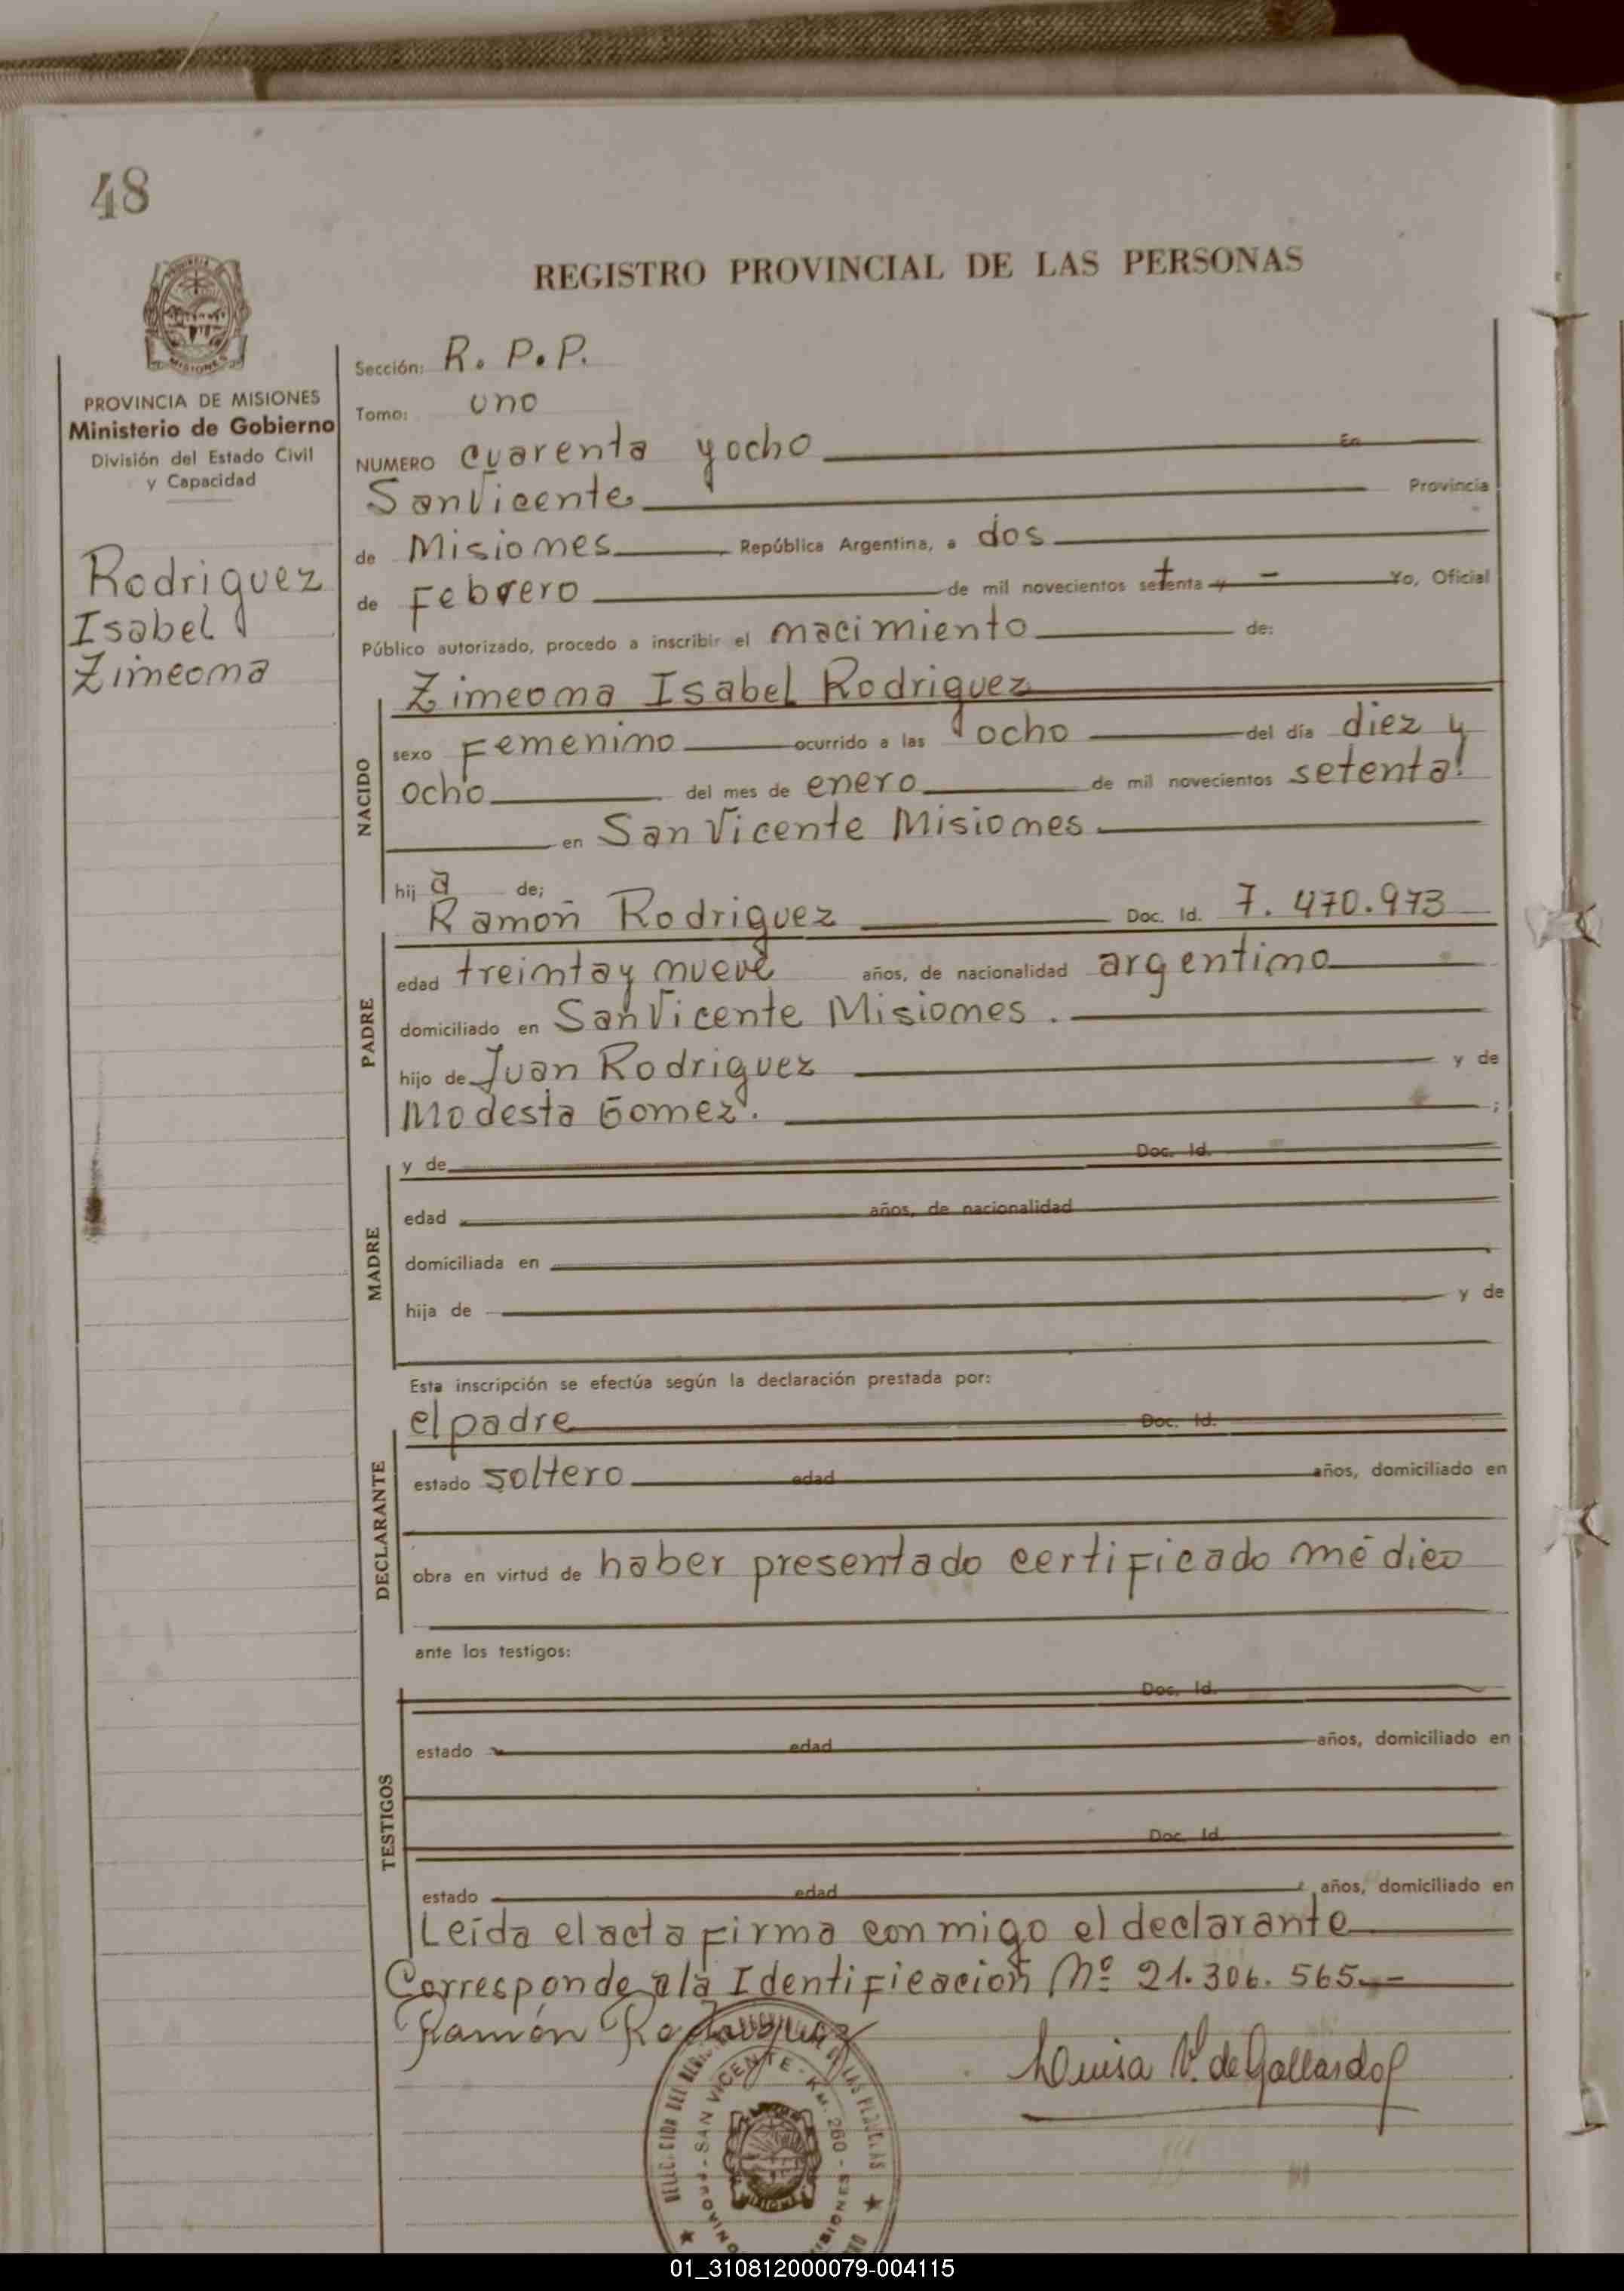 48
REGISTRO PROVINCIAL DE LAS PERSONAS
MISIONES
PROVINCIA DE MISIONES
Ministerio de Gobierno
División del Estado Civil
y Capacidad
Rodriguez
Isabel
Zimeoma
Sección: R. P. P.
Tomo: uno
NUMERO cuarenta y ocho En
San Vicente Provincia
de Misiones República Argentina, a dos
de Febrero de mil novecientos setenta y - Yo, Oficial
Público autorizado, procedo a inscribir el nacimiento de:
NACIDO
Zimeoma Isabel Rodriguez
sexo Femenino ocurrido a las ocho del día diez y
ocho del mes de enero de mil novecientos setenta
en San Vicente Misiones
hij a de;
PADRE
Ramón Rodriguez Doc. Id. 7. 470.973
edad treinta y nueve años, de nacionalidad argentino
domiciliado en San Vicente Misiones.
hijo de Juan Rodriguez y de
Modesta Gomez. ;
MADRE
y de Doc. Id.
edad años, de nacionalidad
domiciliada en
hija de y de
Esta inscripción se efectúa según la declaración prestada por:
DECLARANTE
el padre Doc. Id.
estado soltero edad años, domiciliado en
obra en virtud de haber presentado certificado médico
ante los testigos:
TESTIGOS
Doc. Id.
estado edad años, domiciliado en
Doc. Id.
estado edad años, domiciliado en
Leída el acta firma conmigo el declarante
Corresponde a la Identificación Nº 21. 306. 565.-
Ramón Rodriguez
Luisa V. de Gallardo
SAN VICENTE - Km. 260 - MISIONES
01_310812000079-004115